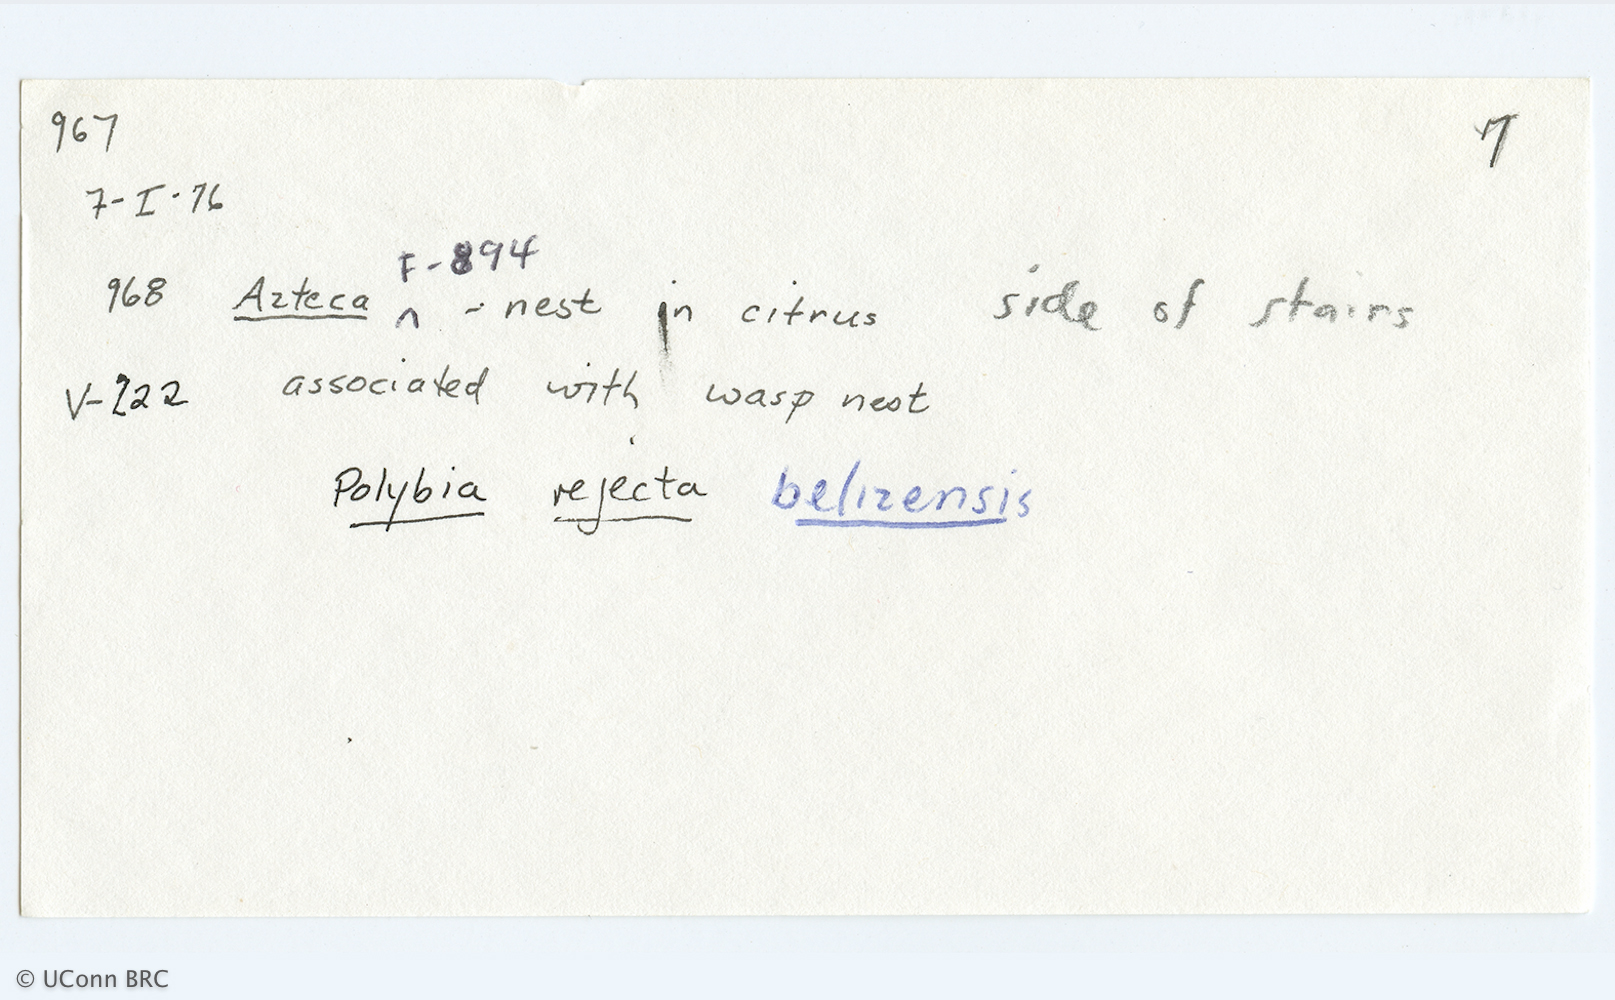 967 7
7-I-76
F-894
968 Azteca ^ - nest in citrus side of stairs
V-222 associated with wasp nest
Polybia rejecta belizensis
© UConn BRC